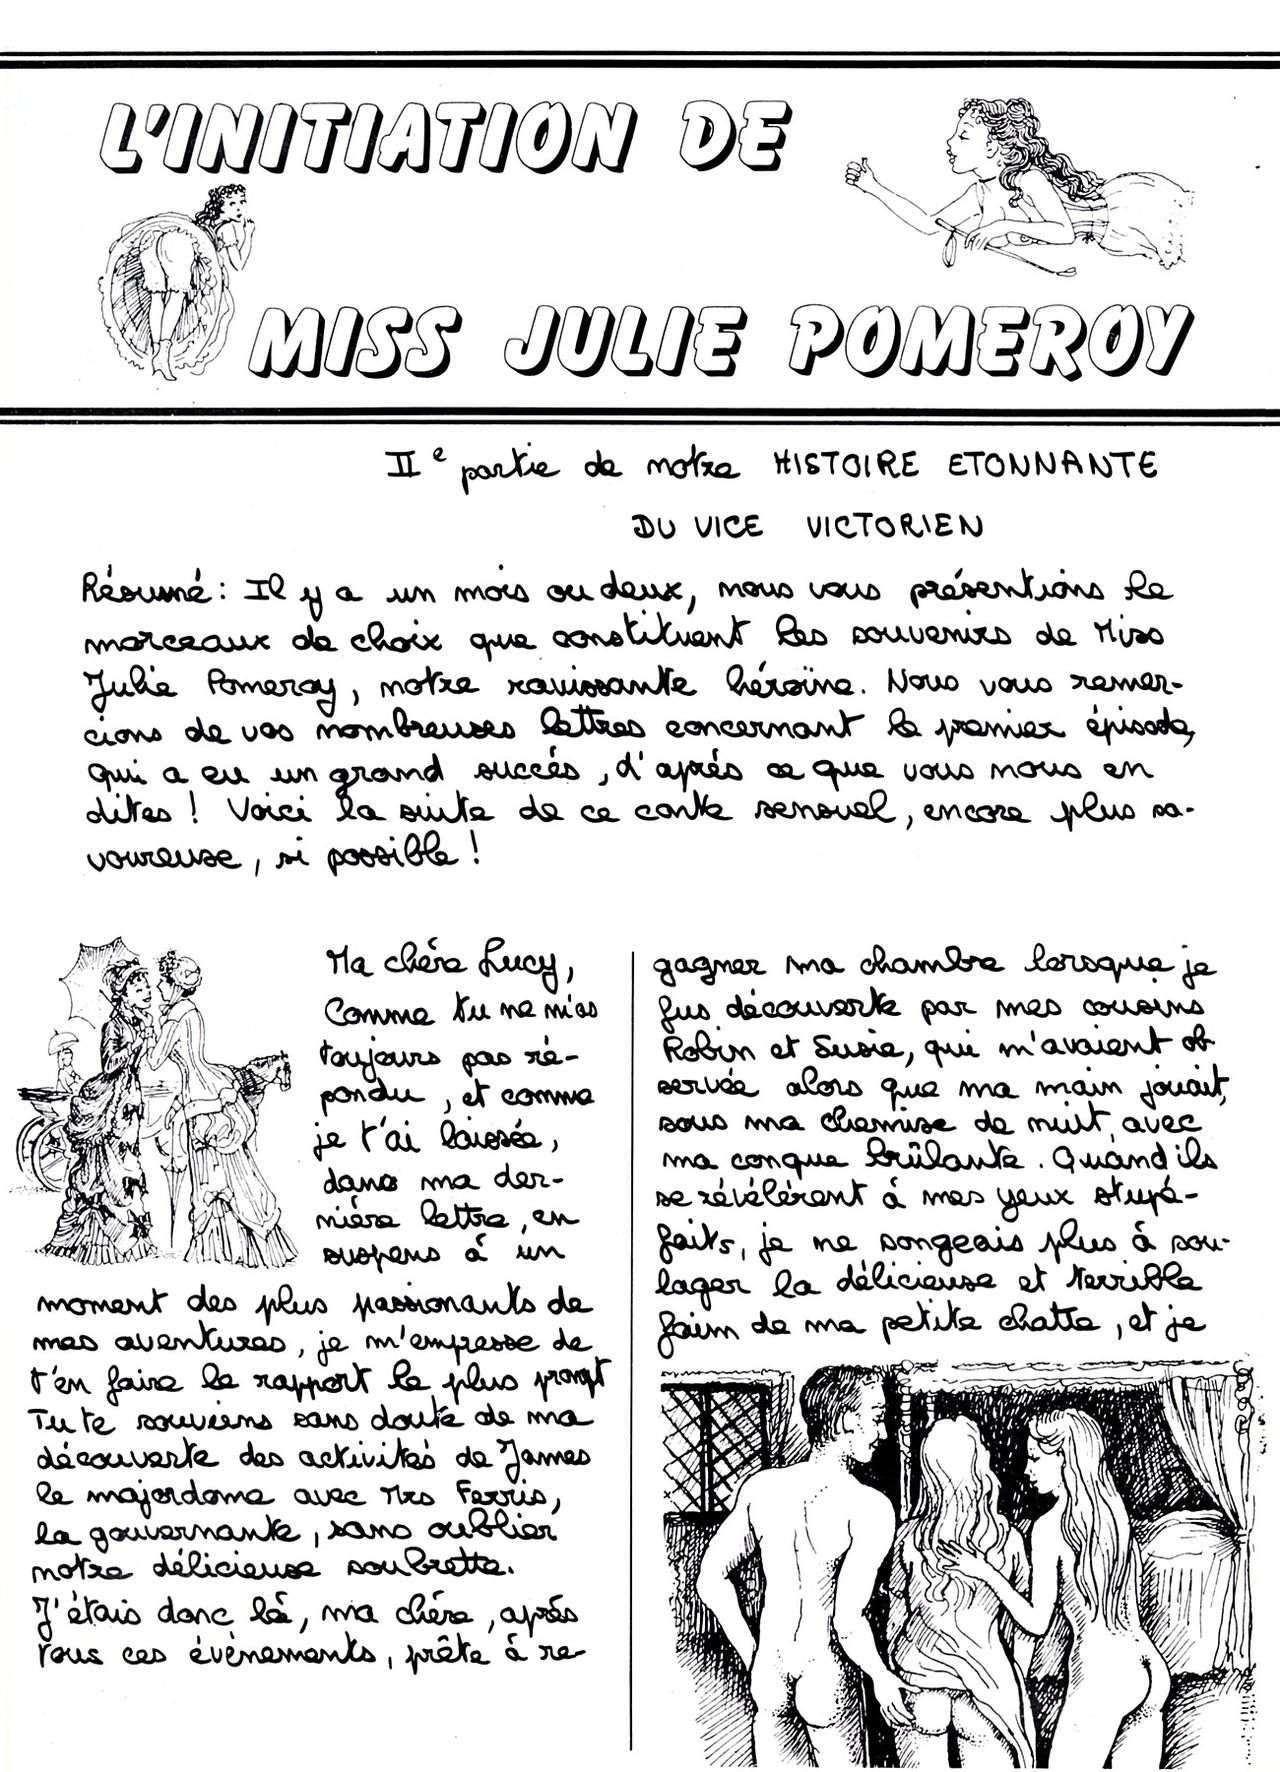 L'INITIATION DE
MISS JULIE POMEROY
IIe partie de notre HISTOIRE ETONNANTE
DU VICE VICTORIEN
Résumé : Il y a un mois ou deux, nous vous présentions le
morceaux de choix que constituent les souvenirs de Miss
Julie Pomeroy, notre ravissante héroïne. Nous vous remer-
cions de vos nombreuses lettres concernant le premier épisode,
qui a eu un grand succés, d'aprés ce que vous nous en
dites ! Voici la suite de ce conte sensuel, encore plus sa-
voureuse, si possible !
Ma chére Lucy,
Comme tu ne m'as
toujours pas ré-
pondu, et comme
je t'ai laissée,
dans ma der-
niére lettre, en
suspens à un
moment des plus passionants de
mes aventures, je m'empresse de
t'en faire le rapport le plus prompt
Tu te souviens sans doute de ma
découverte des activités de James
le majordome avec Mrs Ferris,
la gouvernante, sans oublier
notre délicieuse soubrette.
J'étais donc là, ma chére, aprés
tous ces évènements, prête à re-
gagner ma chambre lorsque je
fus découverte par mes cousins
Robin et Susie, qui m'avaient ob
servée alors que ma main jouait,
sous ma chemise de nuit, avec
ma conque brûlante. Quand ils
se révélérent à mes yeux stupé-
faits, je ne songeais plus à sou-
lager la délicieuse et terrible
faim de ma petite chatte, et je